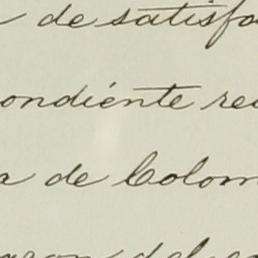 de satisfa
ondiénte rec
a de Colom